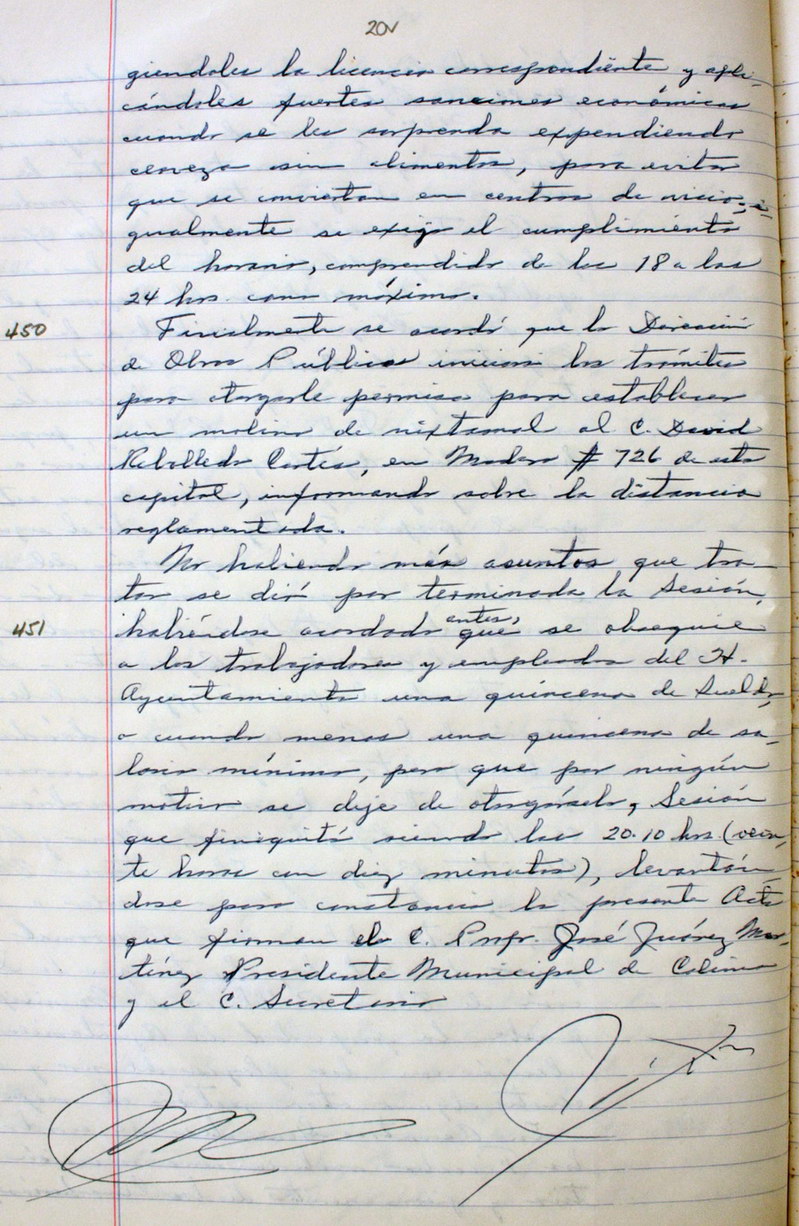 20v
giendoles la licencia correspondiente y apli-
cándoles fuertes sanciones económicas
cuando se les sorprenda expendiendo
cerveza sin alimentos, para evitar
que se conviertan en centros de vicio; i-
gualmente se exija el cumplimiento
del horario, comprendido de las 18 a las
24 hrs. como máximo.
450
Finalmente se acordó que la Dirección
de Obras Públicas inicien los trámites
para otorgarle permiso para establecer
un molino de nixtamal al C. David
Rebolledo Cortés, en Madero # 726 de esta
capital, informando sobre la distancia
reglamentada.
No habiendo más asuntos que tra-
tar se dió por terminada la Sesión,
451
habiéndose acordado antes, que se obsequie
a los trabajadores y empleados del H.
Ayuntamiento una quincena de Sueldo,
o cuando menos una quincena de sa-
lario mínimo, pero que por ningún
motivo se deje de otorgárselo, Sesión
que finiquitó siendo las 20.10 hrs. (vein-
te horas con diez minutos), levantán-
dose para constancia la presente Acta
que firman el C. Profr. José Juárez Mar-
tínez Presidente Municipal de Colima
y el C. Secretario